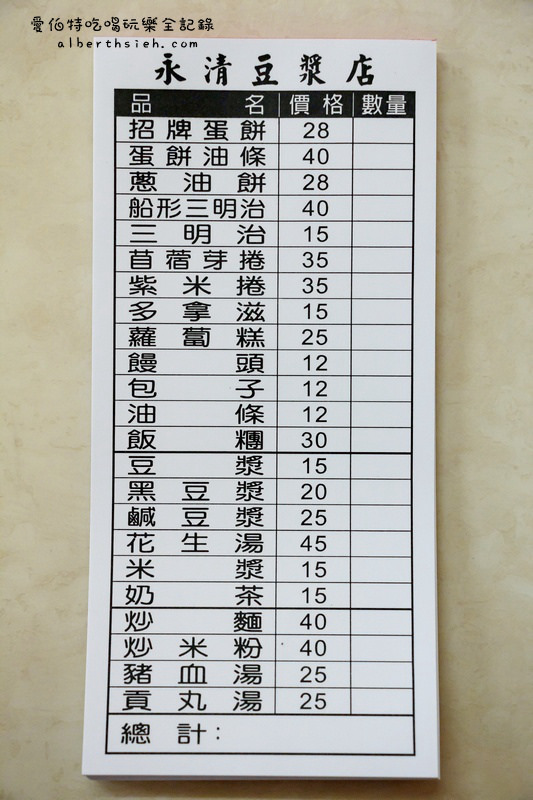 愛伯特吃喝玩樂全記錄
alberthsieh.com
永清豆漿店
品名 價格 數量
招牌蛋餅 28
蛋餅油條 40
蔥油餅 28
船形三明治 40
三明治 15
苜蓿芽捲 35
紫米捲 35
多拿滋 15
蘿蔔糕 25
饅頭 12
包子 12
油條 12
飯糰 30
豆漿 15
黑豆漿 20
鹹豆漿 25
花生湯 45
米漿 15
奶茶 15
炒麵 40
炒米粉 40
豬血湯 25
貢丸湯 25
總計：